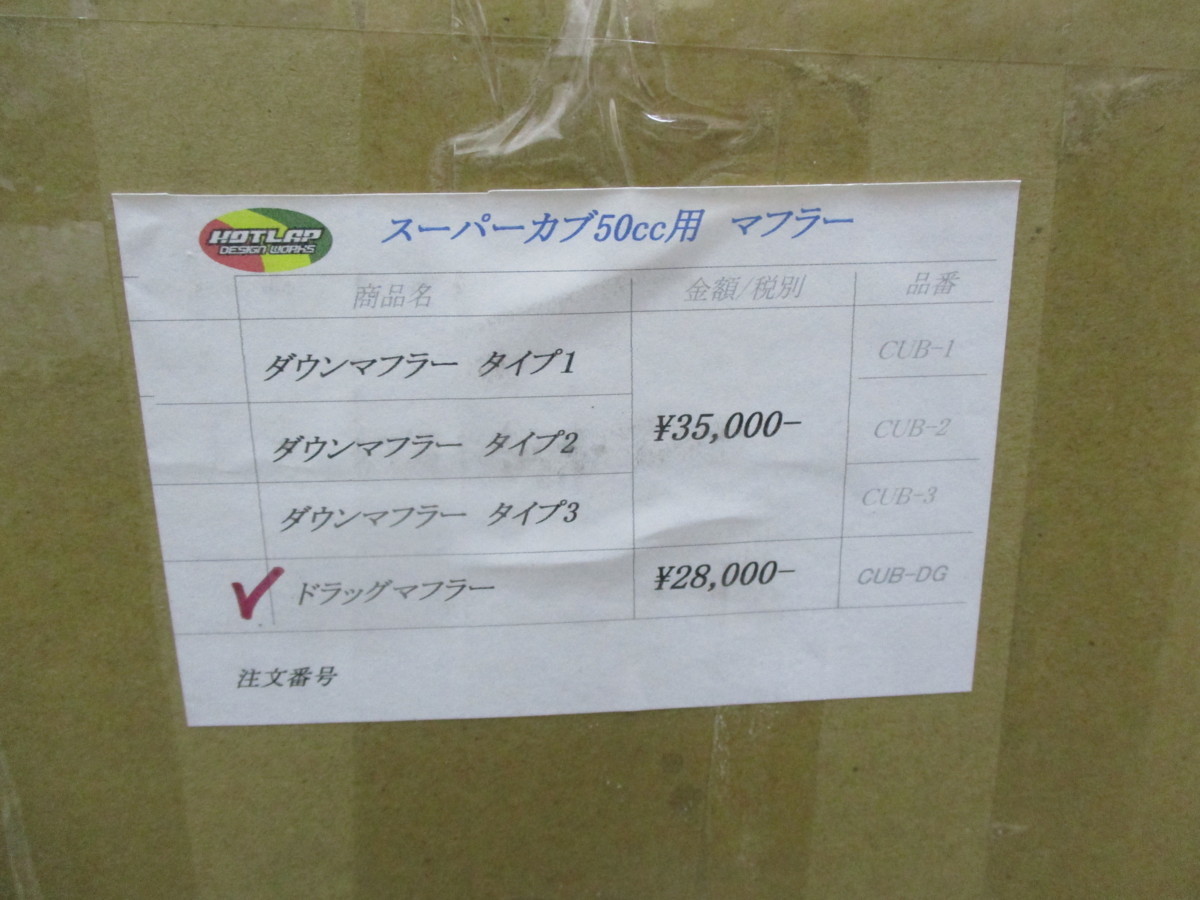 HOTLAP
DESIGN WORKS
スーパーカブ50cc用 マフラー
商品名 金額/税別 品番
ダウンマフラー タイプ1 CUB-1
ダウンマフラー タイプ2 ¥35,000- CUB-2
ダウンマフラー タイプ3 CUB-3
ドラッグマフラー ¥28,000- CUB-DG
注文番号